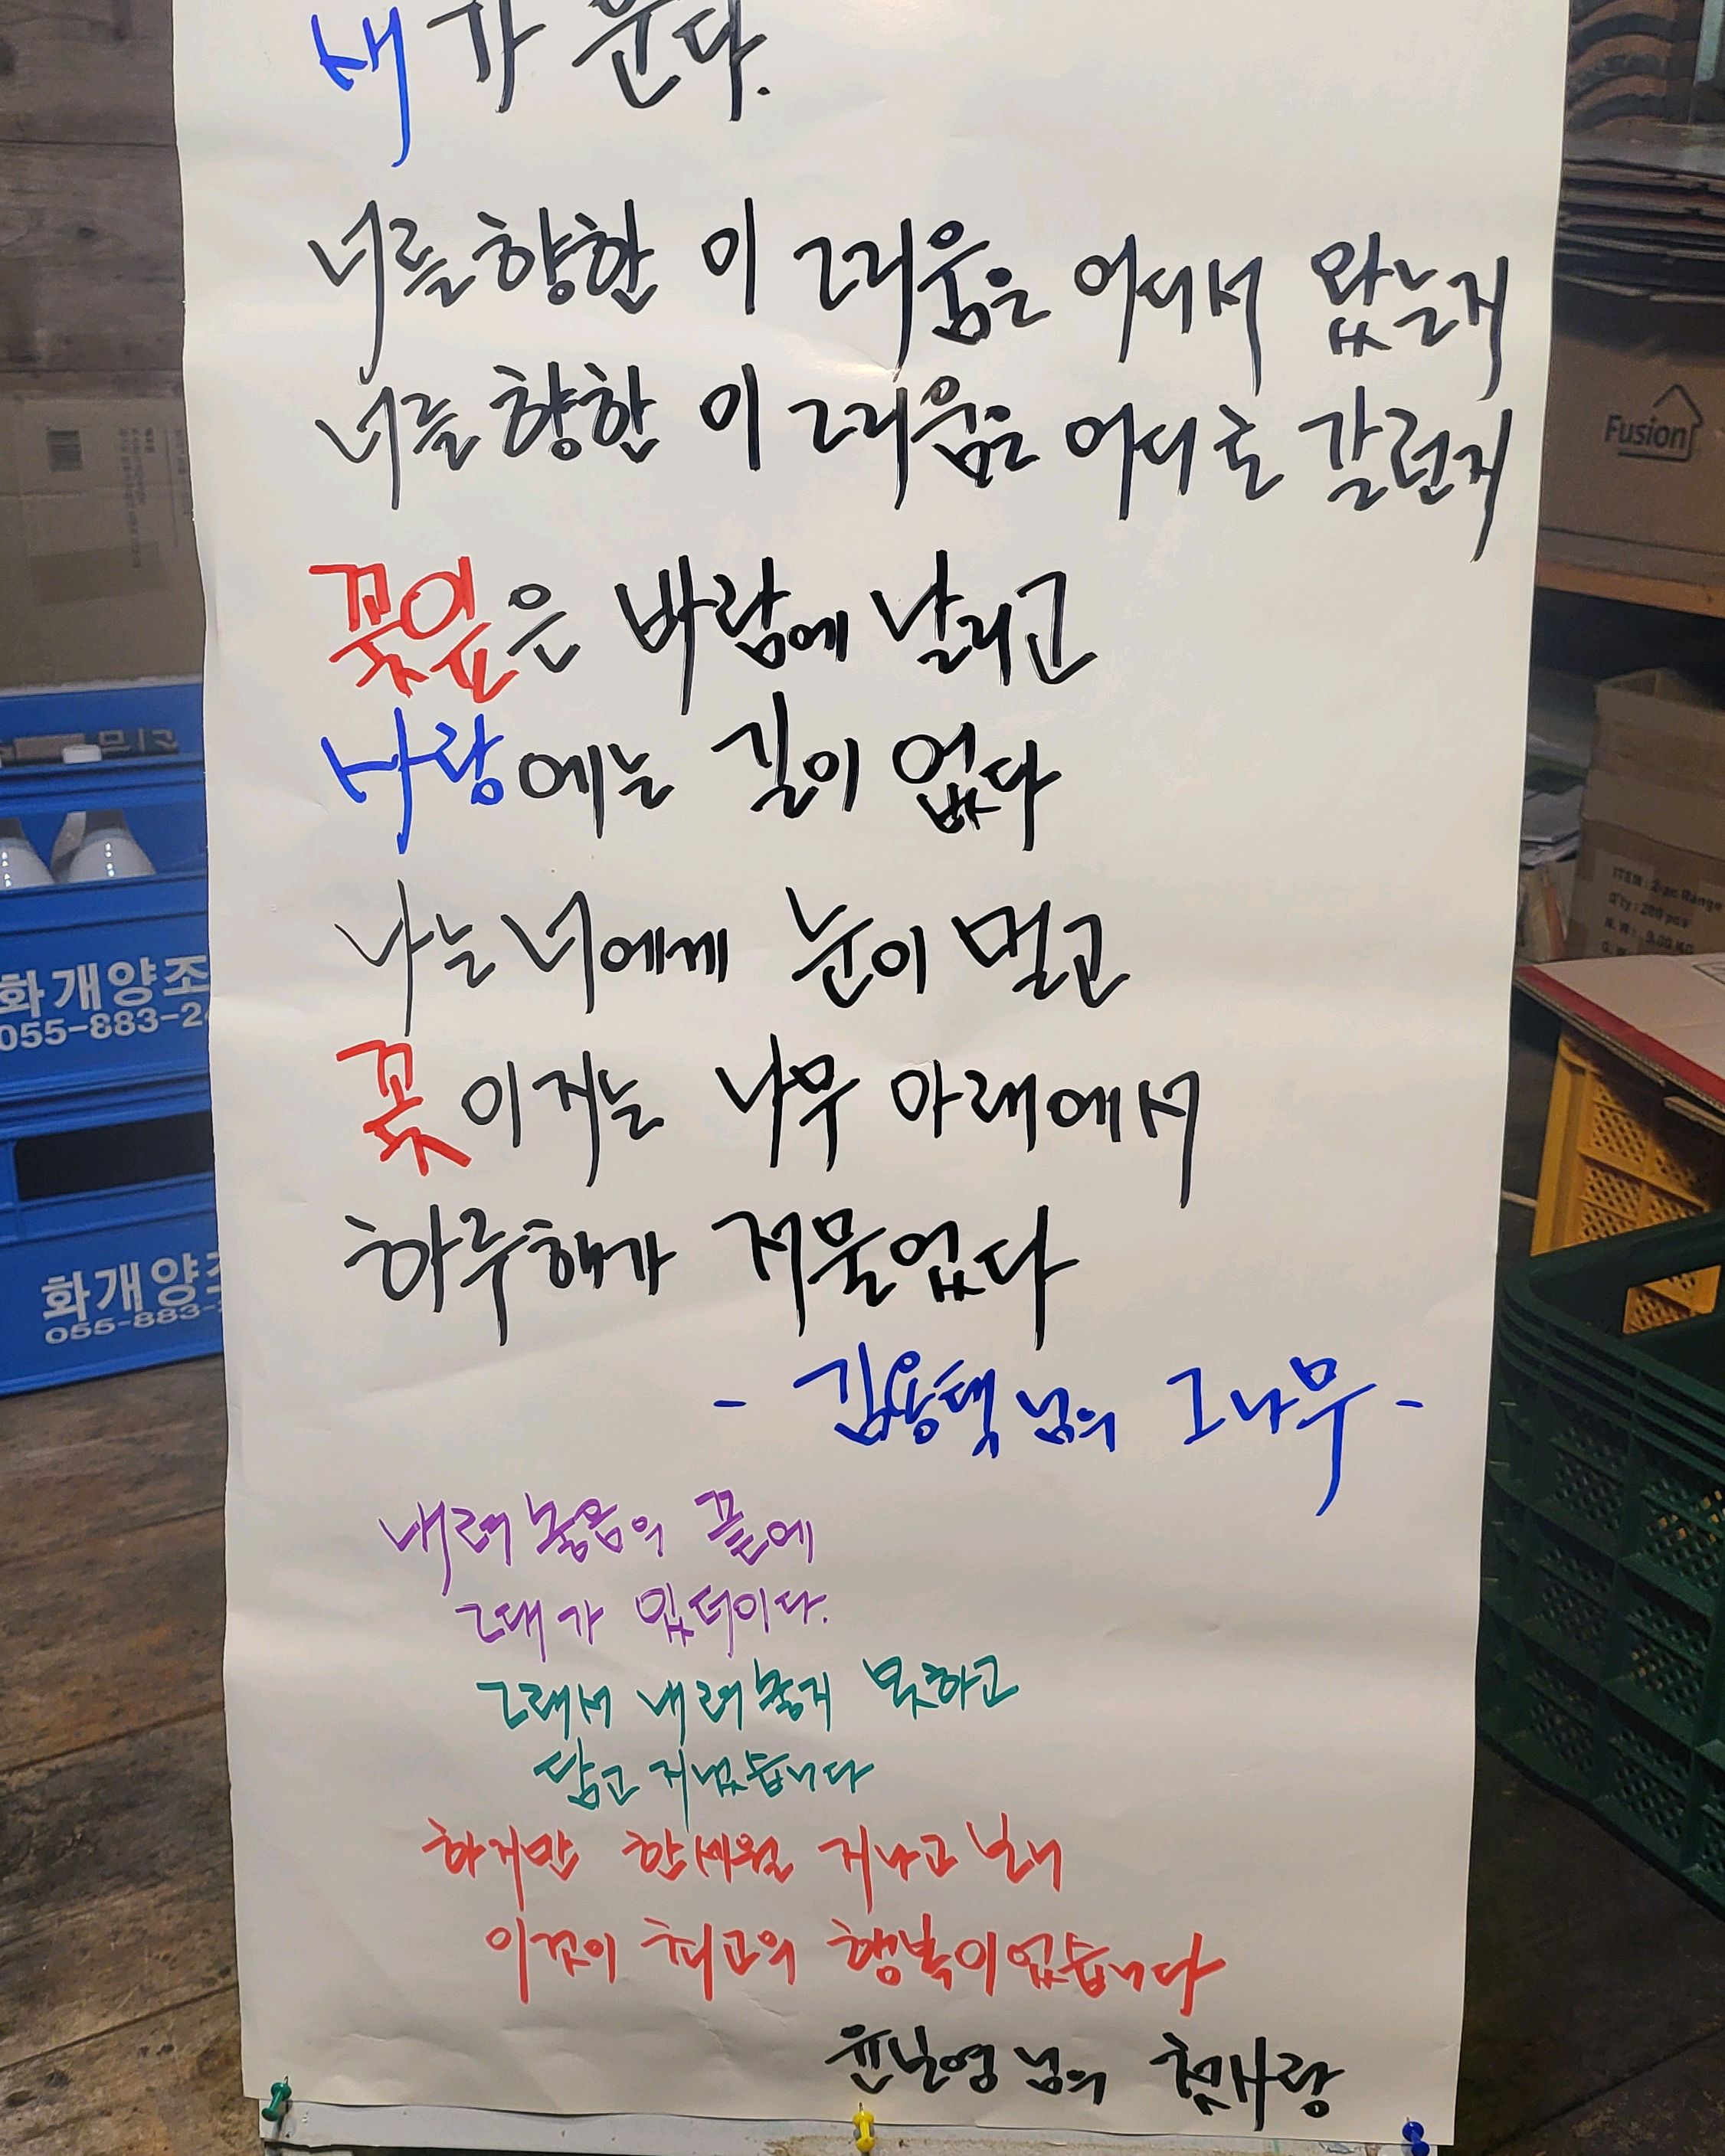 새가 운다.
너를 향한 이 그리움은 어디서 왔는지
너를 향한 이 그리움은 어디로 갈런지
꽃잎은 바람에 날리고
사랑에는 길이 없다
나는 너에게 눈이 멀고
꽃이 지는 나무 아래에서
하루해가 저물었다
- 김용택님의 그 나무 -
내려놓음의 끝에
그대가 있더이다.
그래서 내려놓지 못하고
담고 지냈습니다
하지만 한세월 지나고 보니
이것이 최고의 행복이었습니다
윤보영님의 첫사랑
화개양조
055-883-2
화개양조
055-883-
Fusion
ITEM : 2 pc Range
Q'ty : 200 pcs
N.W : 9.00 KG
G.W :